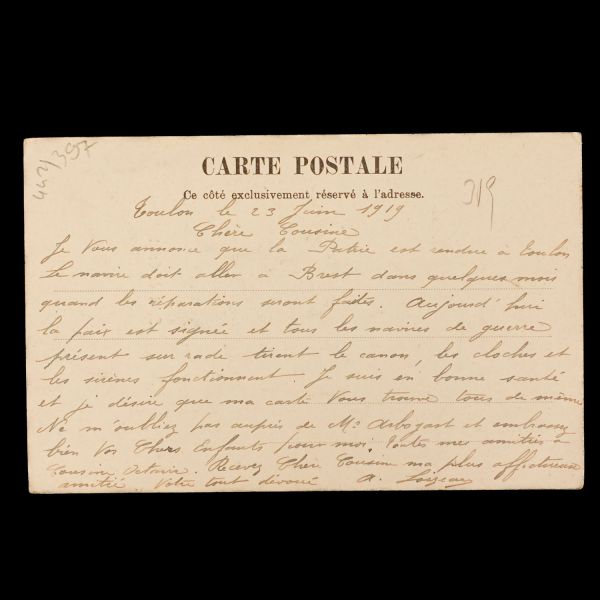 442/397
CARTE POSTALE
Ce côté exclusivement réservé à l'adresse.
319
Toulon le 23 Juin 1919
Chère Cousine
Je Vous annonce que la Patrie est rendue à Toulon
Le navire doit aller à Brest dans quelques mois
quand les réparations seront faites. Aujourd'hui
la paix est signée et tous les navires de guerre
présent sur rade tirent le canon, les cloches et
les sirènes fonctionnent. Je suis en bonne santé
et je désire que ma carte Vous trouve tous de même
Ne m'oubliez pas auprès de Me Arbogast et embrassez
bien Vos Chers Enfants pour moi, toutes mes amitiés à
Cousine Octavie. Recevez Chère Cousine ma plus affectueuse
amitié. Votre tout dévoué A.